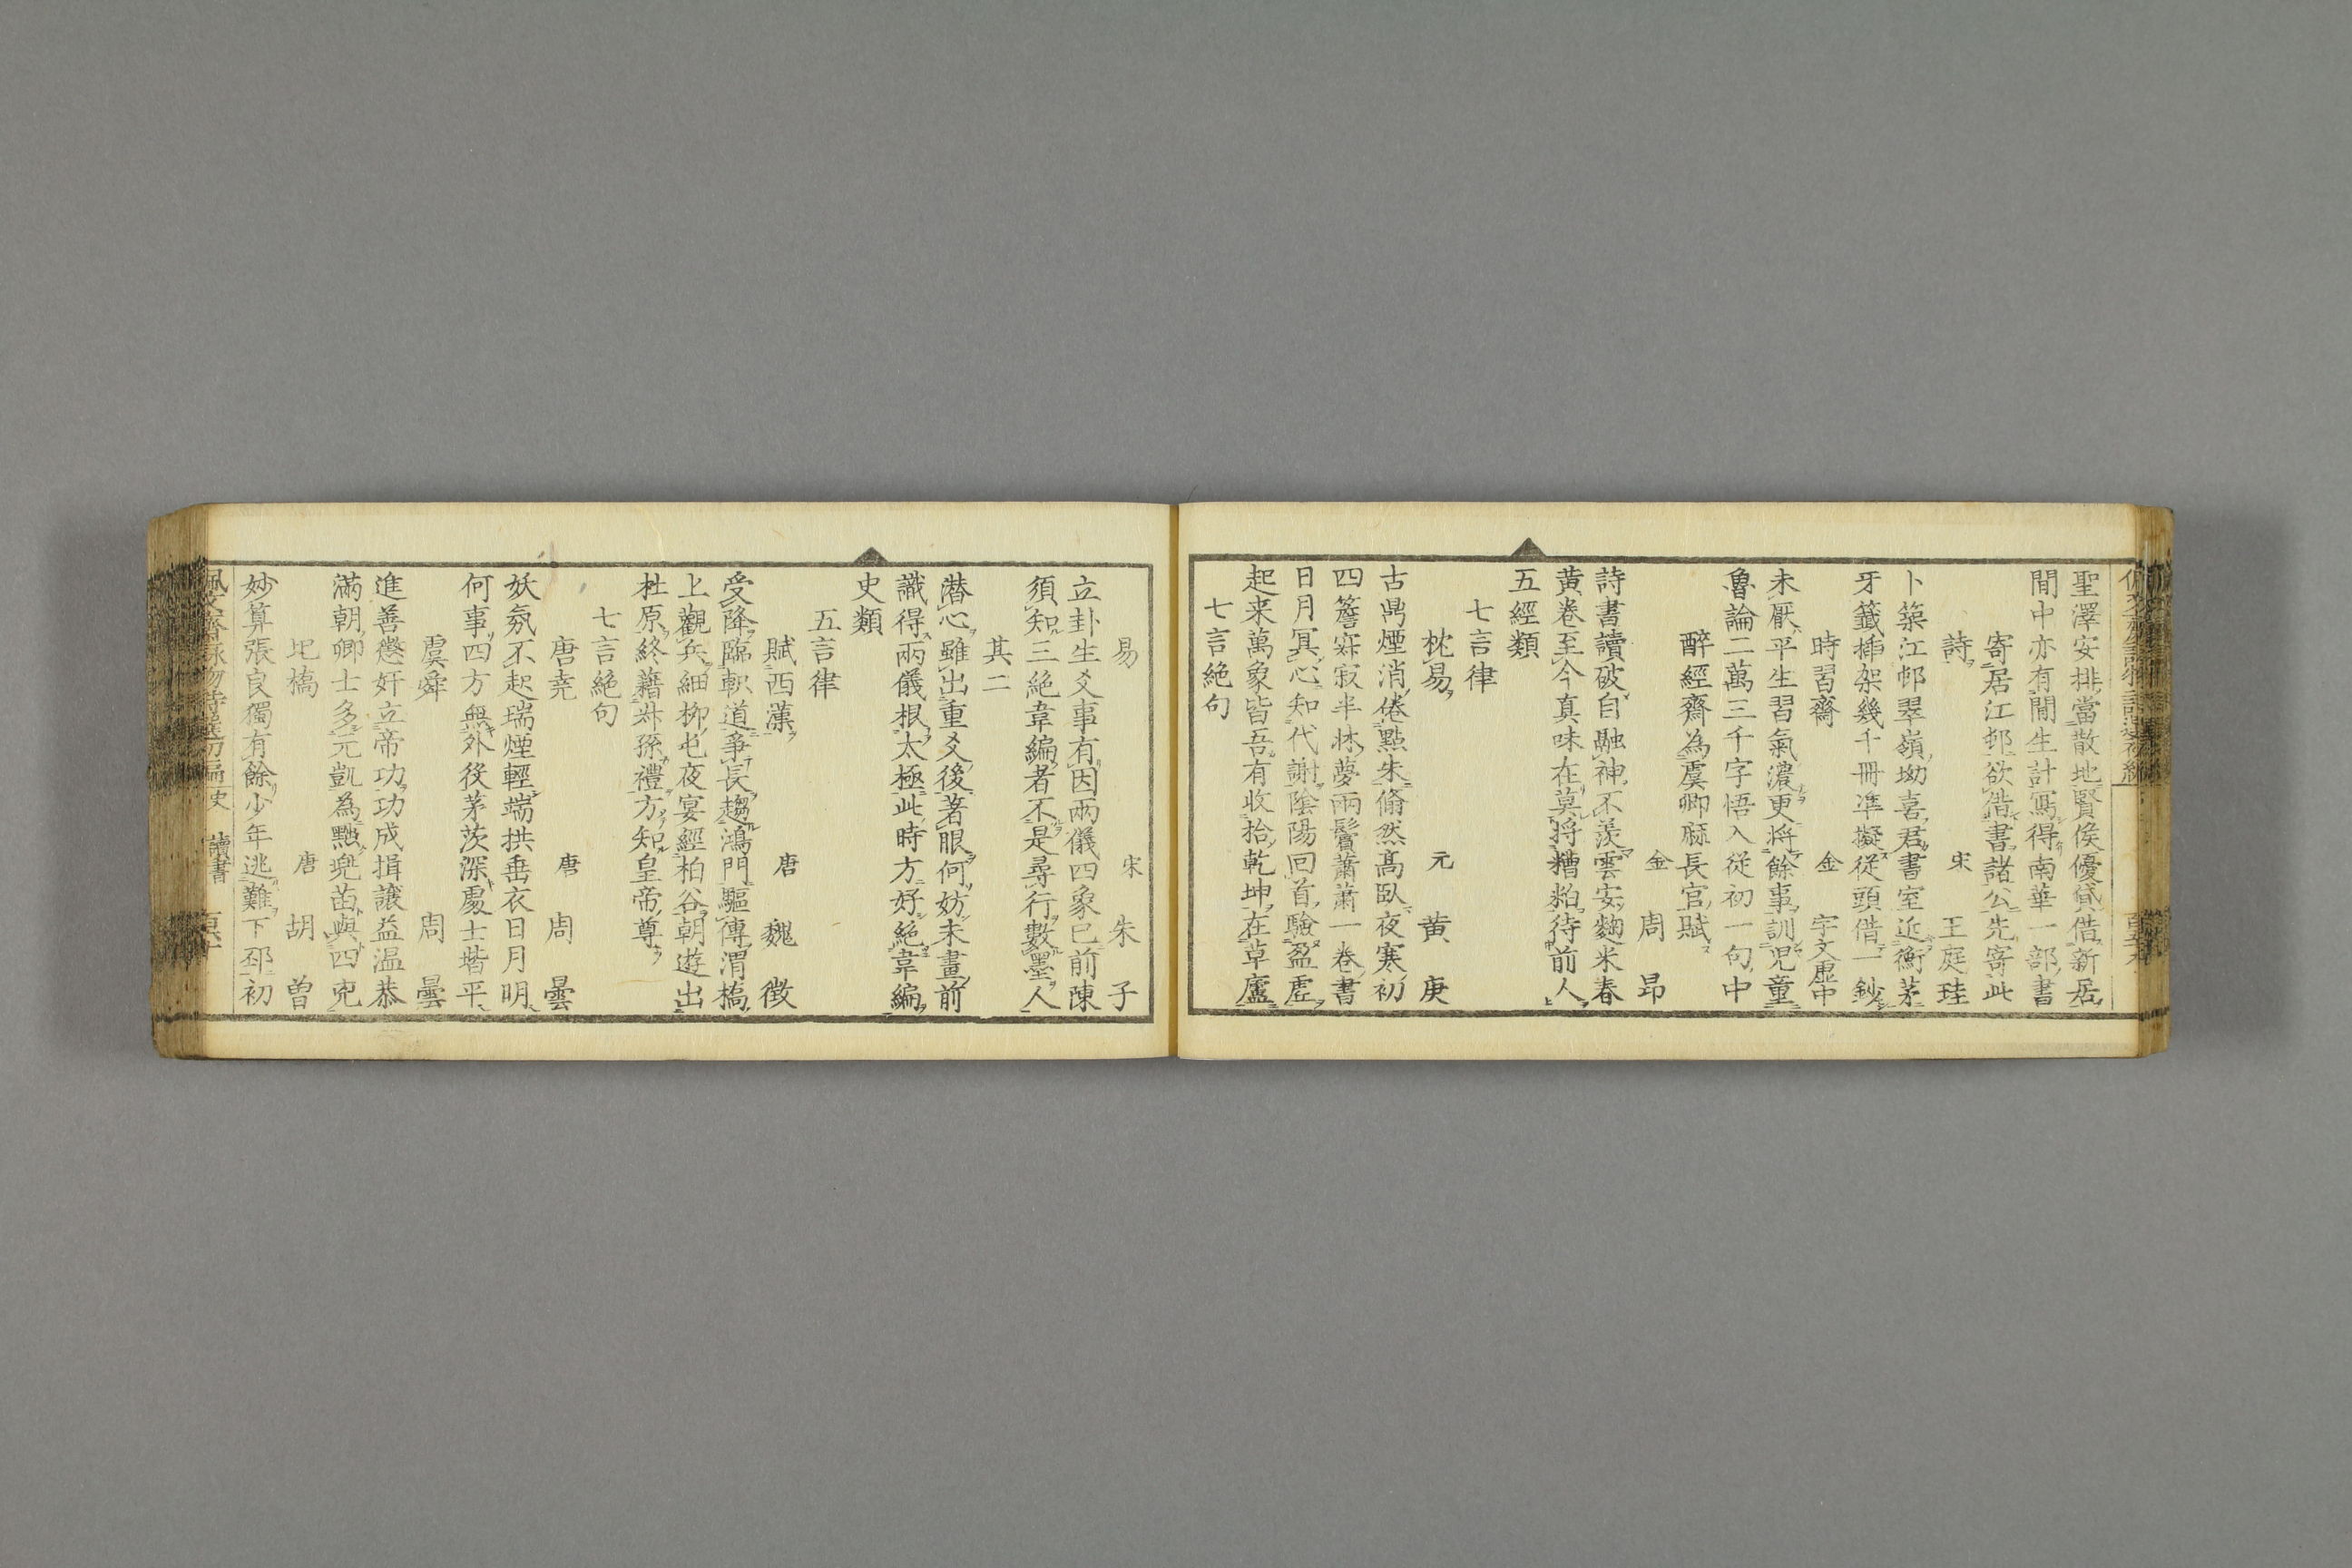 聖澤安排當散地賢侯優貸借新居
閒中亦有閒生計寫得南華一部書
寄居江邨欲借書諸公先寄此
詩 宋 王庭珪
卜築江邨翠嶺坳喜君書室近衡茅
牙籤插架幾千冊準擬從頭借一鈔
時習齋 金 宇文虛中
未厭平生習氣濃更將餘事訓兒童
魯論二萬三千字悟入從初一句中
醉經齋為虞卿麻長官賦
金 周昂
詩書讀破自融神不羨雲安麴米春
黃卷至今真味在莫將糟粕待前人
五經類
七言律
枕易 元 黄庚
古鼎煙消倦點朱翛然高臥夜寒初
四簷寂寂半牀夢兩鬢蕭蕭一卷書
日月冥心知代謝陰陽回首驗盈虛
起来萬象皆吾有收拾乾坤在草廬
七言絶句
易 宋 朱子
立卦生爻事有因兩儀四象已前陳
須知三絶韋編者不是尋行數墨人
其二
潜心雖出重爻後著眼何妨未畫前
識得兩儀根太極此時方好絶韋編
史類
五言律
賦西漢 唐 魏徴
受降臨軹道爭長趨鴻門驅傳渭橋
上觀兵細柳屯夜宴經柏谷朝遊出
杜原終藉叔孫禮方知皇帝尊
七言絶句
唐堯 唐 周曇
妖氛不起瑞煙輕端拱垂衣日月明
何事四方無外役茅茨深處土堦平
虞舜 周曇
進善懲奸立帝功功成揖讓益温恭
滿朝卿士多元凱為黜兜苗與四兇
圯橋 唐 胡曽
妙算張良獨有餘少年逃難下邳初
佩文齋詠物詩選初編 史 讀書